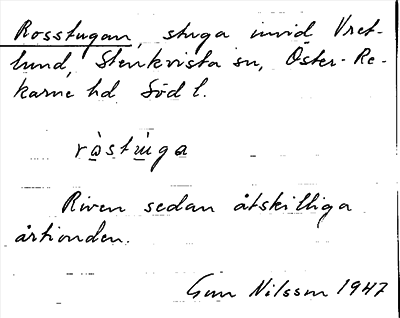 Rosstugan, stuga invid Vret-
lund, Stenkvista sn, Öster-Re-
karne hd Södl.
ròstùga
Riven sedan åtskilliga
årtionden.
Gun Nilsson 1947